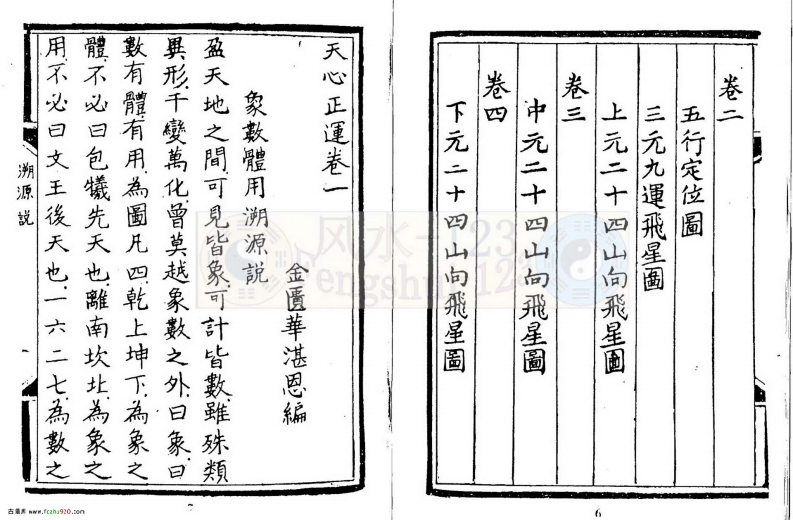 卷二
五行定位圖
三元九運飛星圖
上元二十四山向飛星圖
卷三
中元二十四山向飛星圖
卷四
下元二十四山向飛星圖
6
天心正運卷一
金匱華湛恩編
象數體用溯源説
盈天地之間可見皆象可計皆數雖殊類
異形千變萬化曾莫越象數之外曰象曰
數有體有用為圖凡四乾上坤下為象之
體不必曰包犧先天也離南坎北為象之
用不必曰文王後天也一六二七為數之
溯源説
7
风水-123
Fengshui-123
古易库 www.fczhu920.com